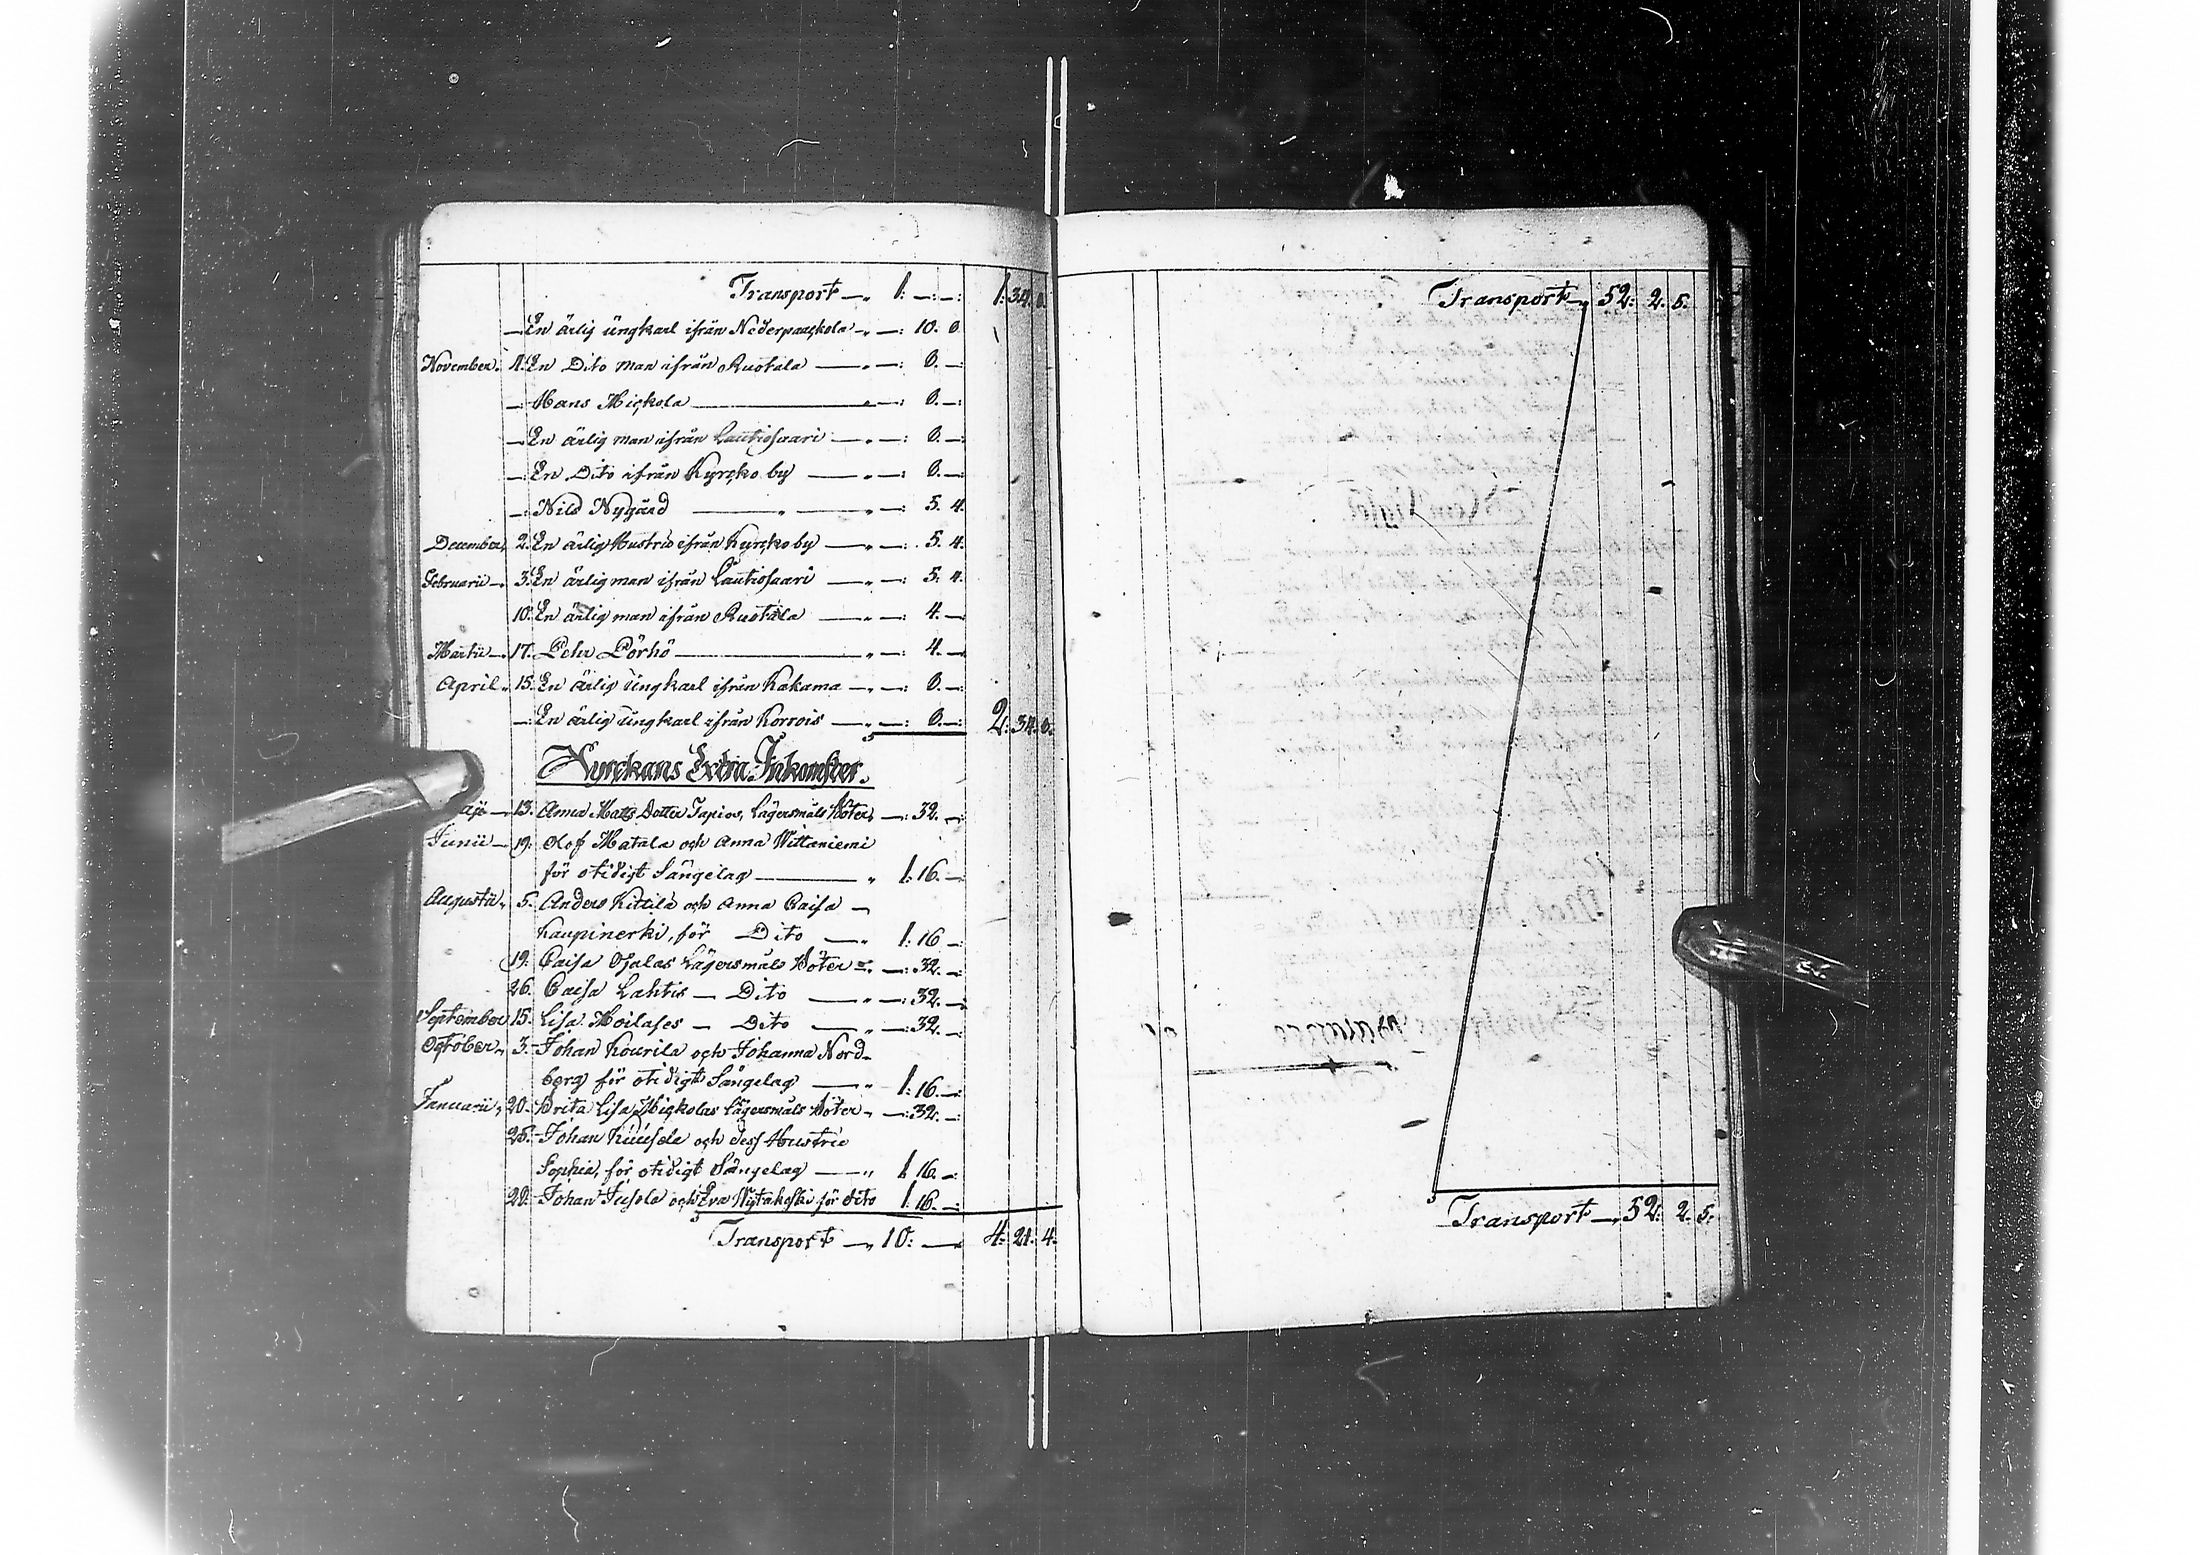 Transport —„ 1: —: —: 1: 34. 8.
—: En ärlig ungkarl ifrån Nederpaackola —„ —: 10. 8.
November. 11. En Dito man ifrån Ruotala —„ —: 8. —:
—: Hans Mickola —„ —: 8. —:
—: En ärlig man ifrån Lautiosaari —„ —: 8. —:
—: En Dito ifrån Kyrcko by —„ —: 8. —:
—: Nils Nygård —„ —„ —: 5. 4.
December, 2. En ärlig Hustru ifrån Kyrcko by —„ —: 5. 4.
Februarii —„ 3. En ärlig man ifrån Lautiosaari —„ —: 5: 4.
10. En ärlig man ifrån Ruotala —„ —: 4. —:
Martii —„ 17. Pehr Pörhö —„ —: 4. —:
April „ 15. En ärlig ungkarl ifrån Kakama —„ —: 8. —:
—: En ärlig ungkarl ifrån Korrois —„ —: 8. —: 2: 34. 8.
Kyrckans Extra Inkomster.
13. Anna Matts Dotter Tapios, Lägersmåls Böter, —: 32. —:
Junii — 19: Olof Matala och Anna Wittaniemi
för otidigt Sängelag —„ 1: 16. —:
Augustii „ 5. Anders Kittilä och Anna Caisa —
Kaupinerki, för Dito —„ 1: 16 —:
19: Caisa Ojalas Lägersmåls Böter —„ —: 32. —:
26. Caisa Lahtis — Dito —„ —: 32. —:
September 15. Lisa Moilases — Dito —„ —: 32. —:
October „ 3. Johan Kourila och Johanna Nord-
berg för otidigt Sängelag —„ 1: 16. —:
Januarii „ 20. Brita Lisa Mickolas Lägersmåls Böter „ —: 32. —:
Johan Kuusela och dess Hustru
Sophia, för otidigt Sängelag —„ 1: 16. —:
Johan Jusola och Eva Nytakoski för dito 1: 16. —:
Transport —„ 10: —„ 4: 21. 4.
Transport —„ 52: 2. 5.
Transport —„ 52: 2. 5.